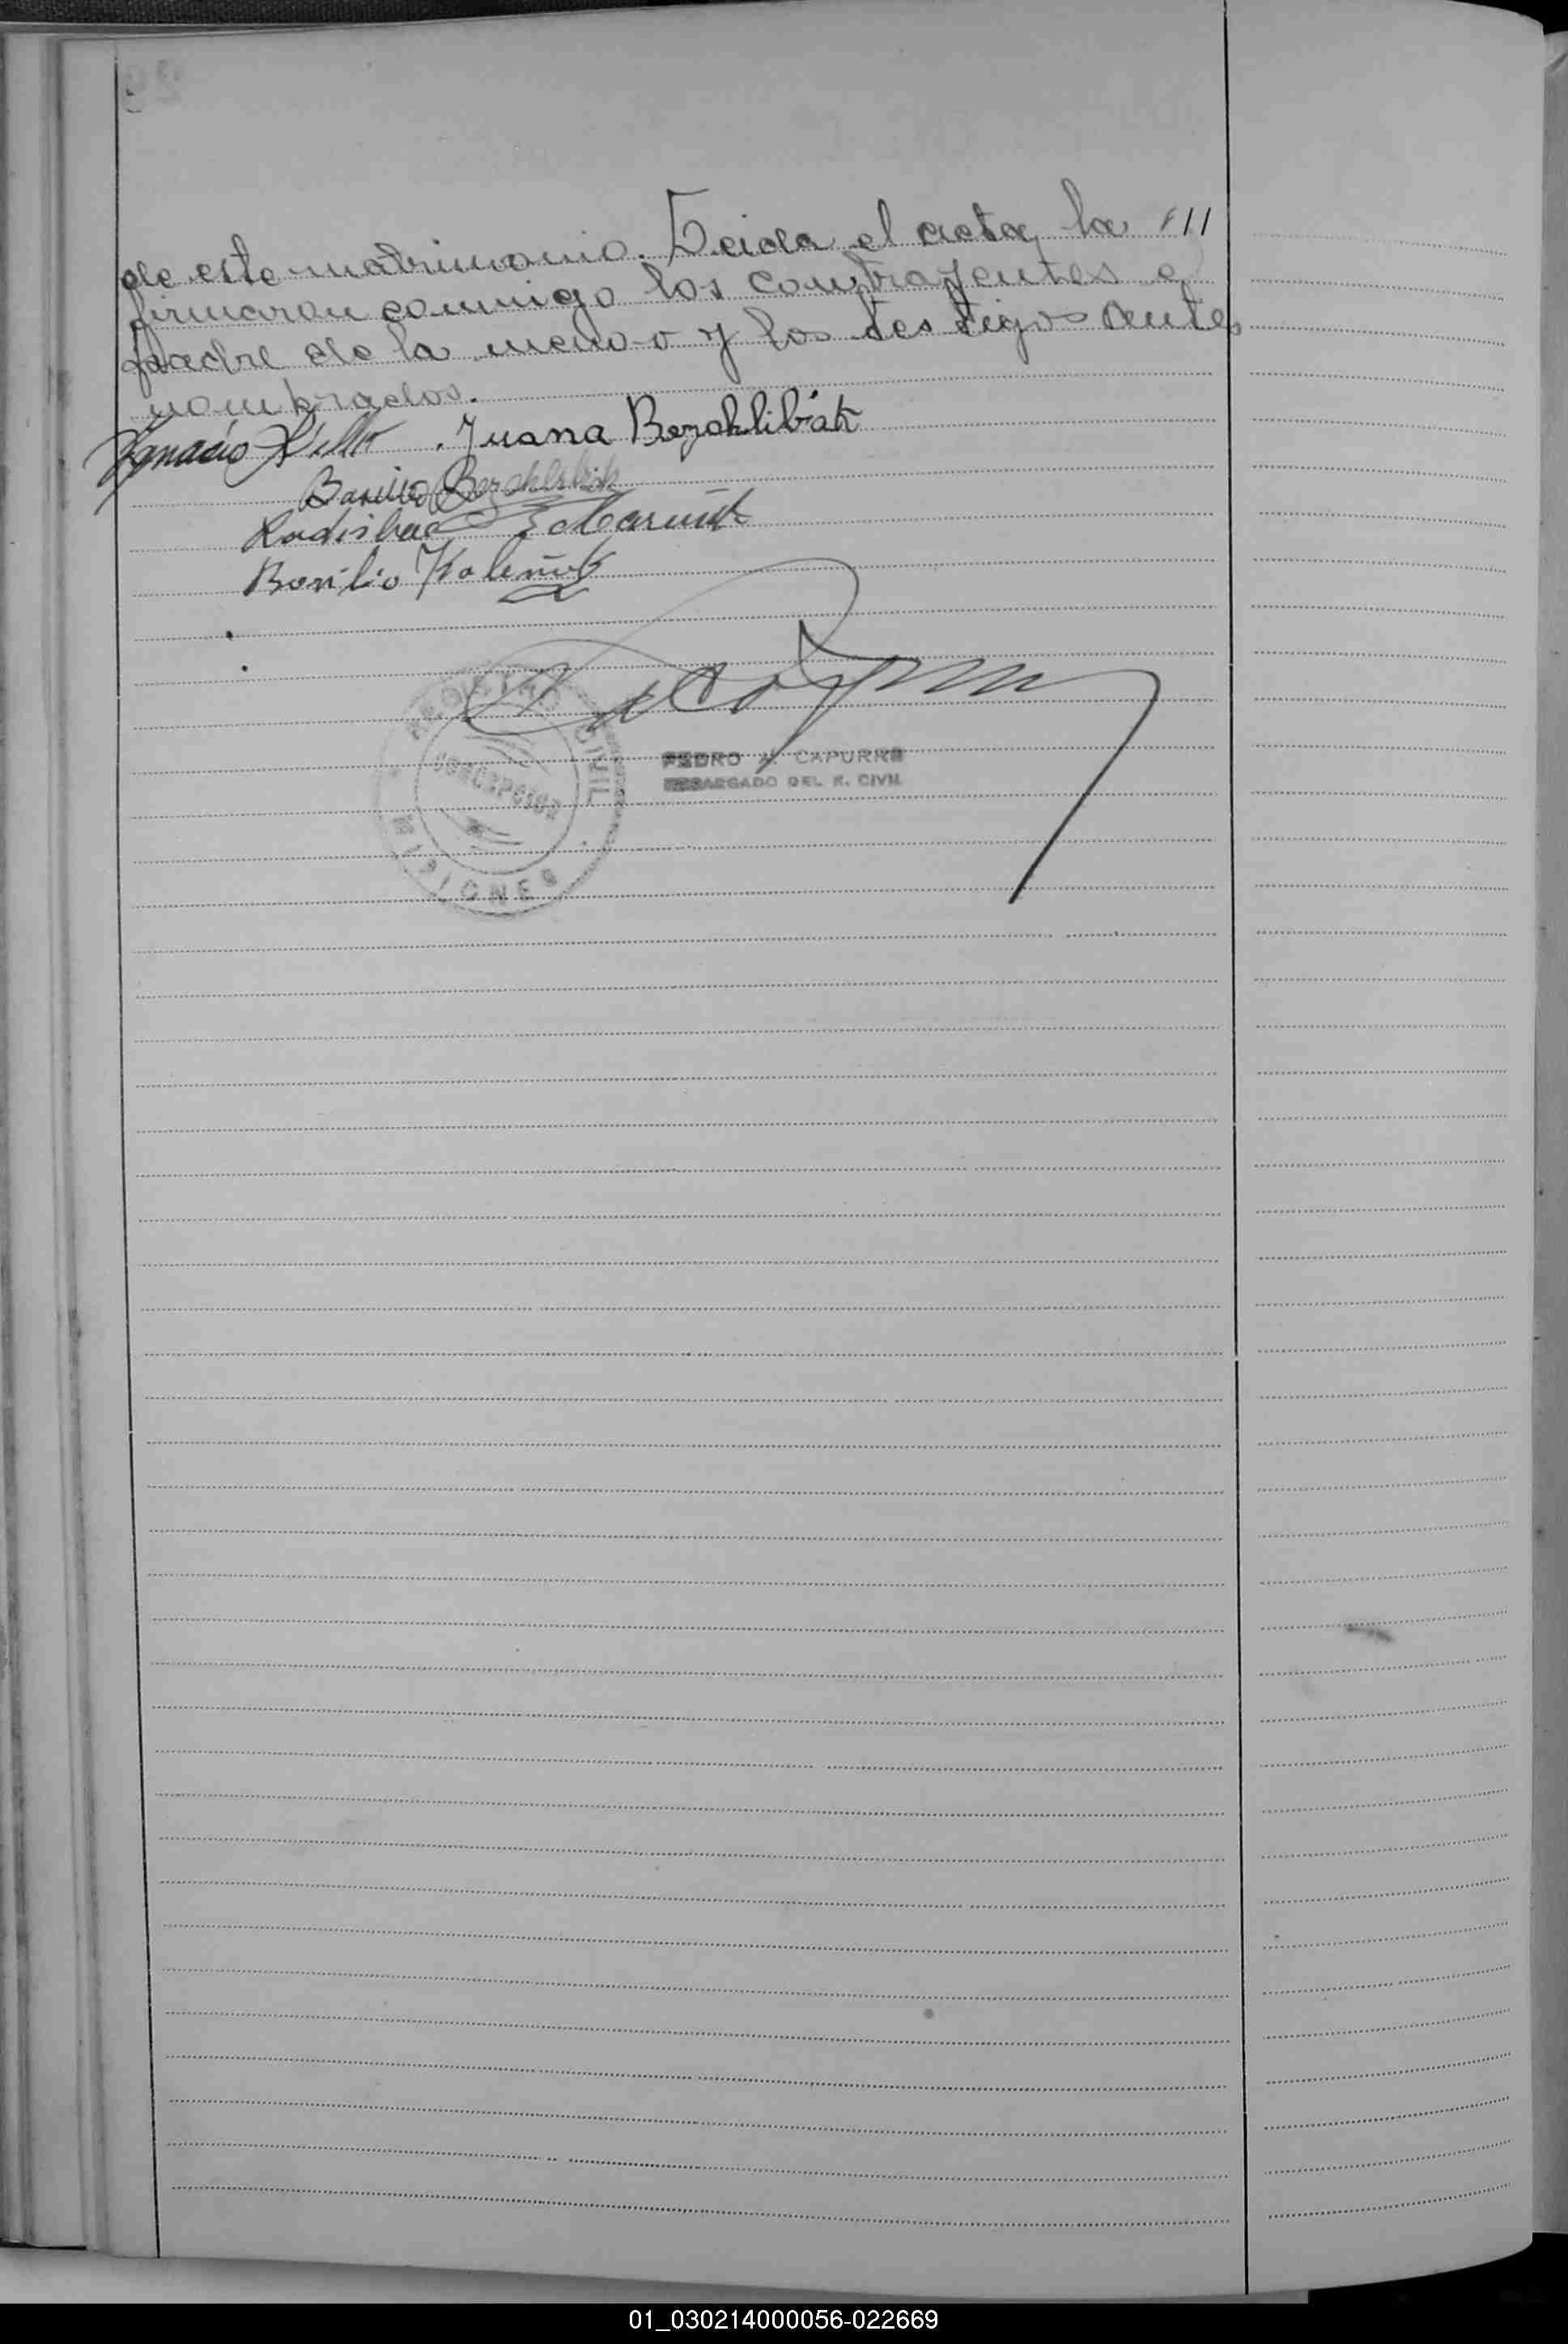 de este matrimonio. Leida el acta, la 111
firmaron conmigo los contrayentes e
padre de la menor y los testigos antes
nombrados.
Ignacio . Juana Bezohlibiak
Basilio Bezohlibik
Ladislao
Basilio Kaleñuk
REGISTRO CIVIL
CONCEPCION
MISIONES
PEDRO A. CAPURRO
ENCARGADO DEL R. CIVIL
01_030214000056-022669